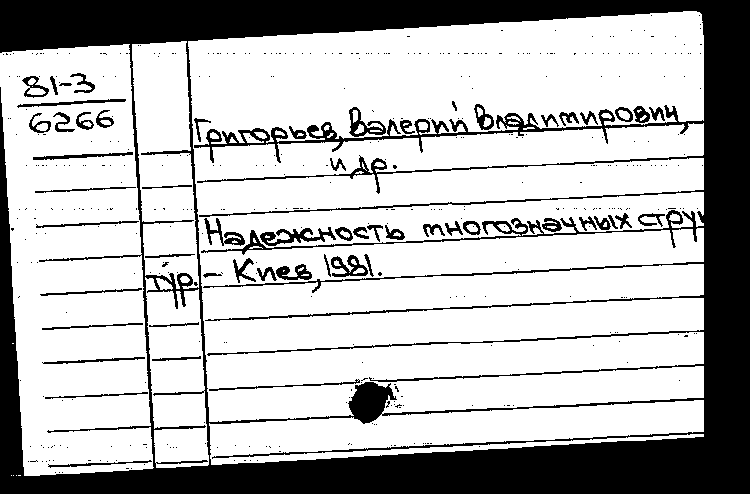 81-3
6266
Григорьев, Валерий Владимирович,
и др.
Надежность многозначных струк
тур. – Киев, 1981.